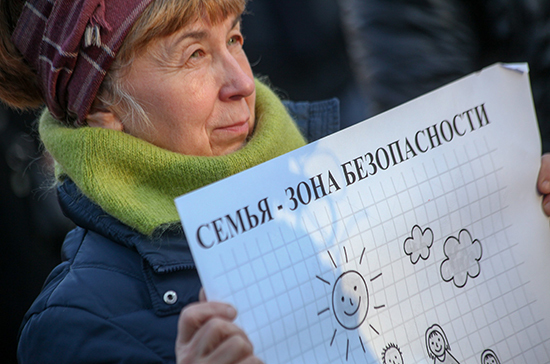 СЕМЬЯ - ЗОНА БЕЗОПАСНОСТИ